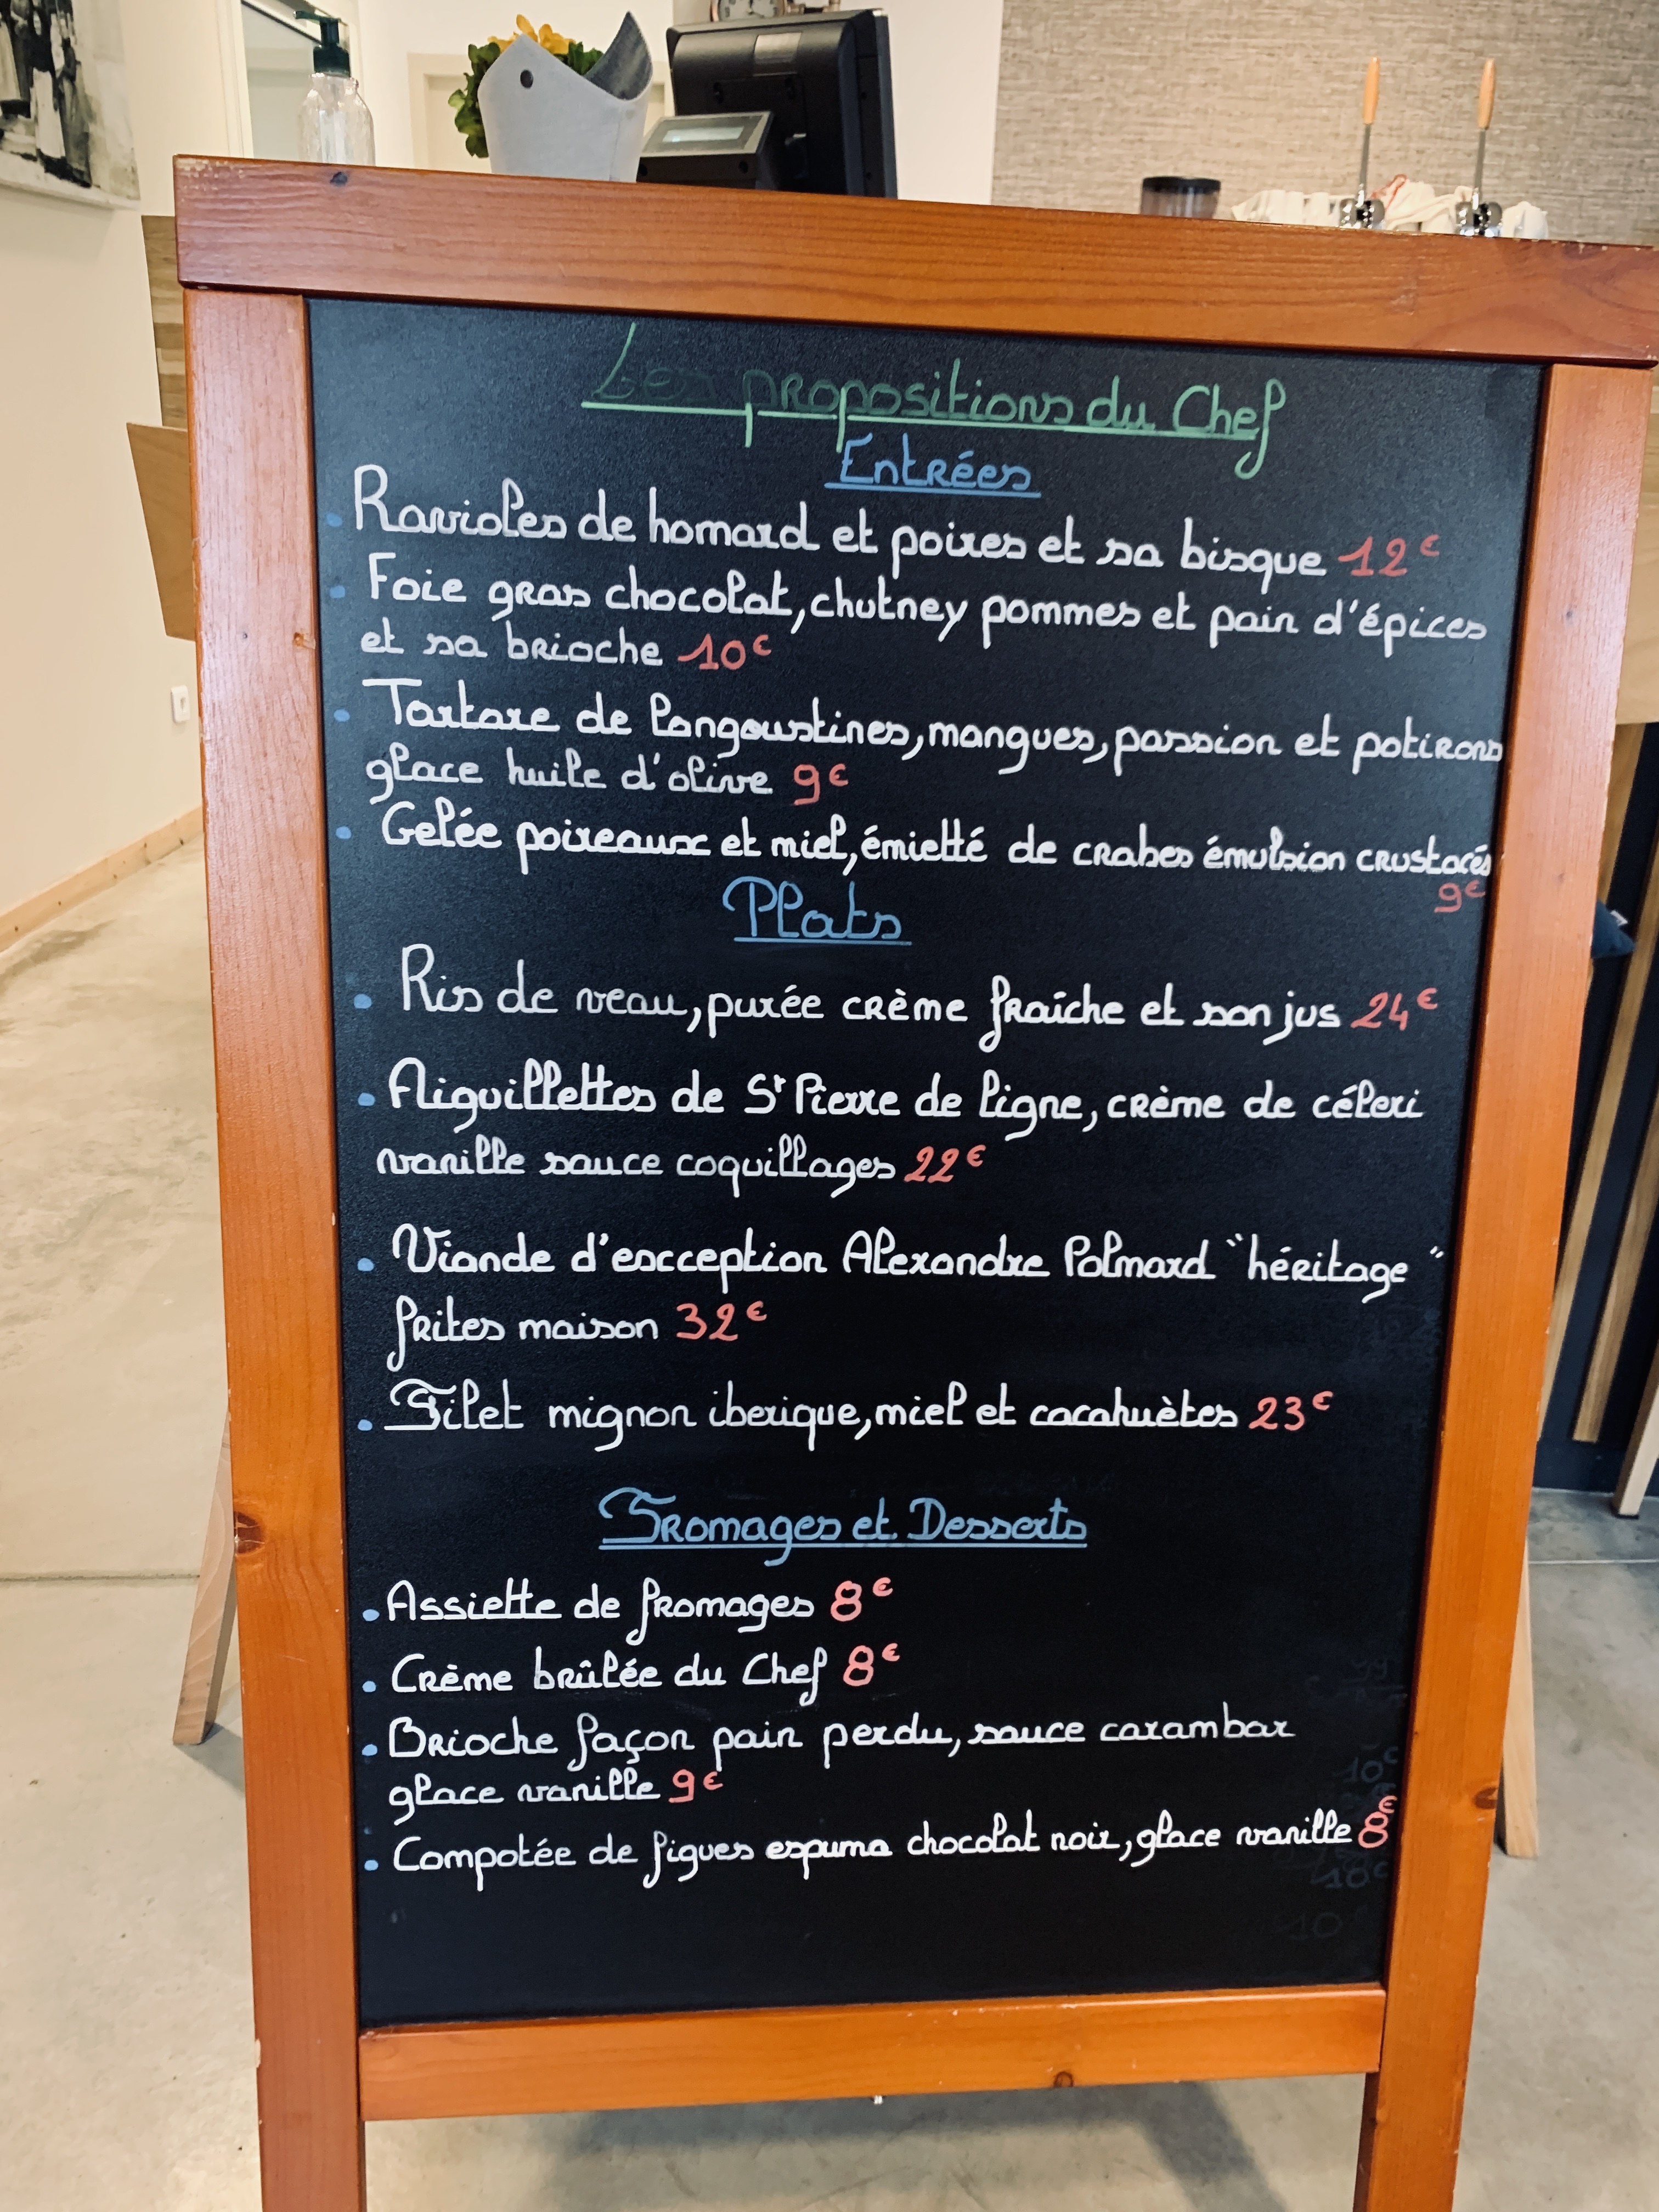 Les propositions du Chef
Entrées
Ravioles de homard et poires et sa bisque 12€
Foie gras chocolat, chutney pommes et pain d'épices
et sa brioche 10€
Tartare de langoustines, mangues, passion et potirons
glace huile d'olive 9€
Gelée poireaux et miel, émietté de crabes émulsion crustacés
9€
Plats
Ris de veau, purée crème fraîche et son jus 24€
Aiguillettes de St Pierre de ligne, crème de céleri
vanille sauce coquillages 22€
Viande d'exception Alexandre Polmard "héritage"
frites maison 32€
Filet mignon iberique, miel et cacahuètes 23€
Fromages et Desserts
Assiette de fromages 8€
Crème brûlée du Chef 8€
Brioche façon pain perdu, sauce carambar
glace vanille 9€
Compotée de figues espuma chocolat noir, glace vanille 8€
10€
10€
10